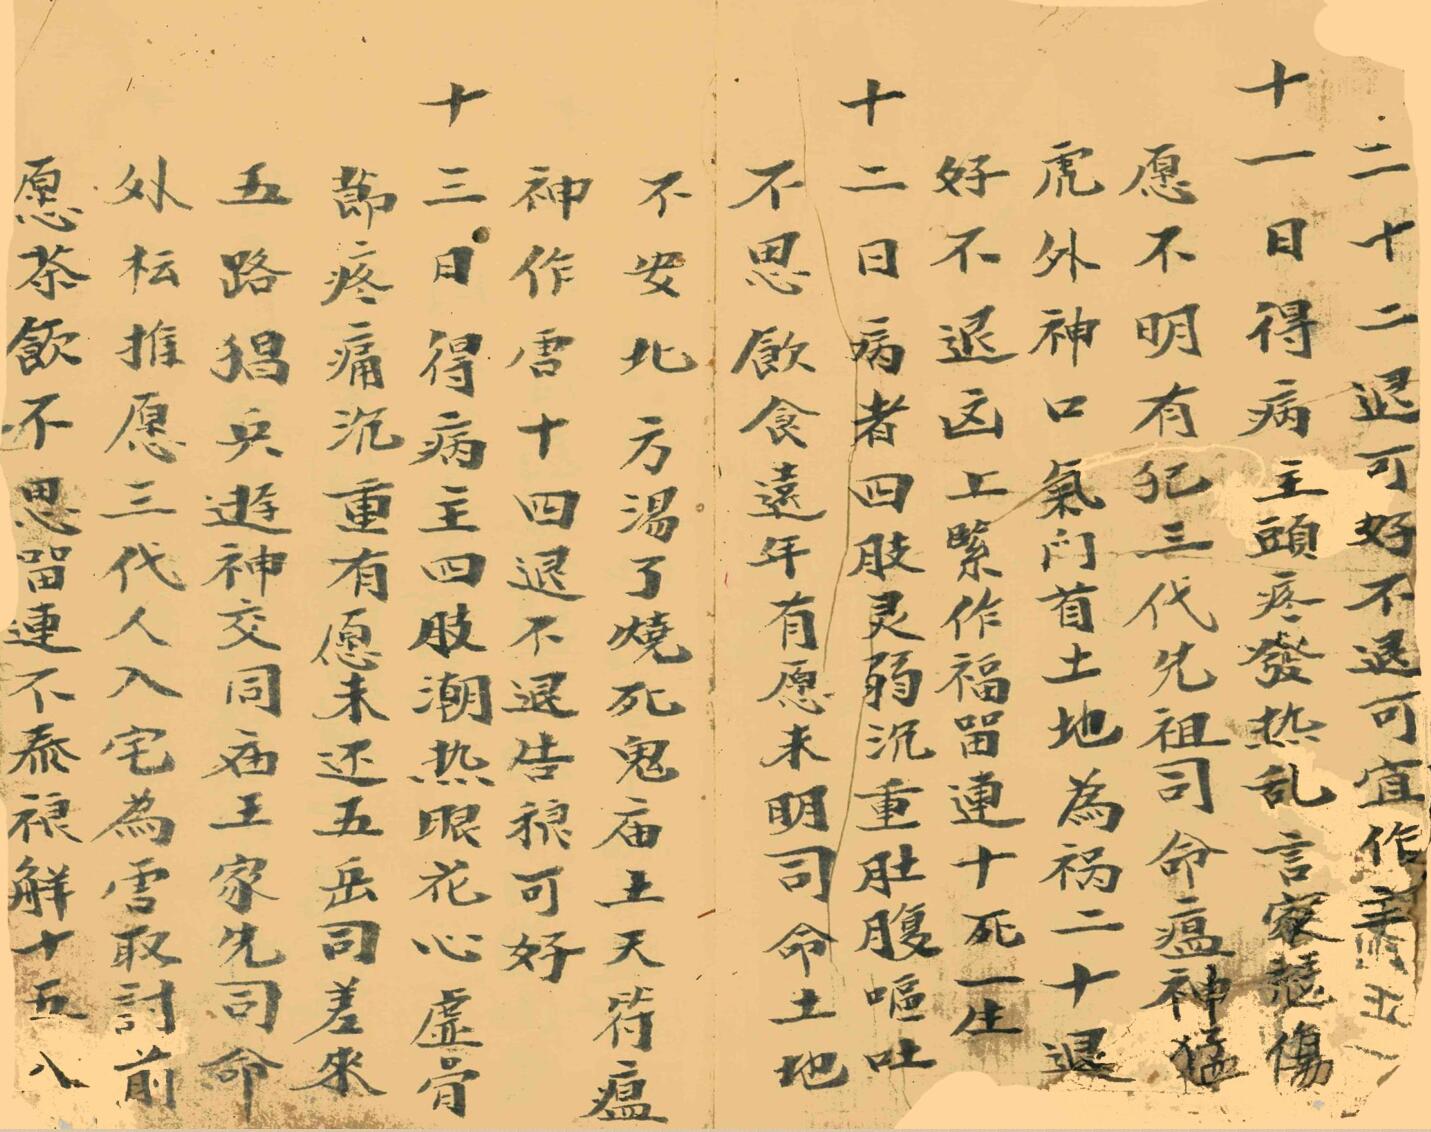 二十二退可好不退可宜作
十一日得病主頭疼發热乱言家慈傷
愿不明有犯三代先祖司命瘟神猛
虎外神口氣门首土地為祸二十退
好不退凶上緊作福畱連十死一生
十二日病者四肢灵弱沉重肚腹嘔吐
不思飲食遠年有愿未明司命土地
不安北方湯了燒死鬼庙主天符瘟
神作雪十四退不退告禳可好
十三日得病主四肢潮热眼花心虛骨
節疼痛沉重有愿未还五岳司差來
五路猖兵遊神交同庙王家先司命
外枟推愿三代人入宅為雪取討前
愿茶飲不思畱連不泰禳解十五八